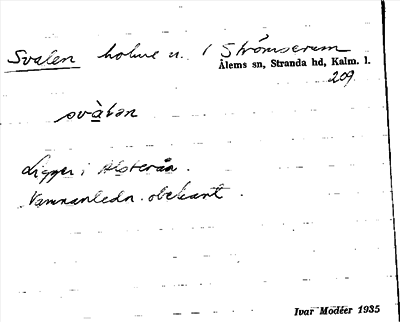 Svalen holme n. / Strömserum
Ålems sn, Stranda hd, Kalm. l.
209.
svàlən
Ligger i Alsterån.
Namnanledn. obekant.
Ivar Modéer 1935